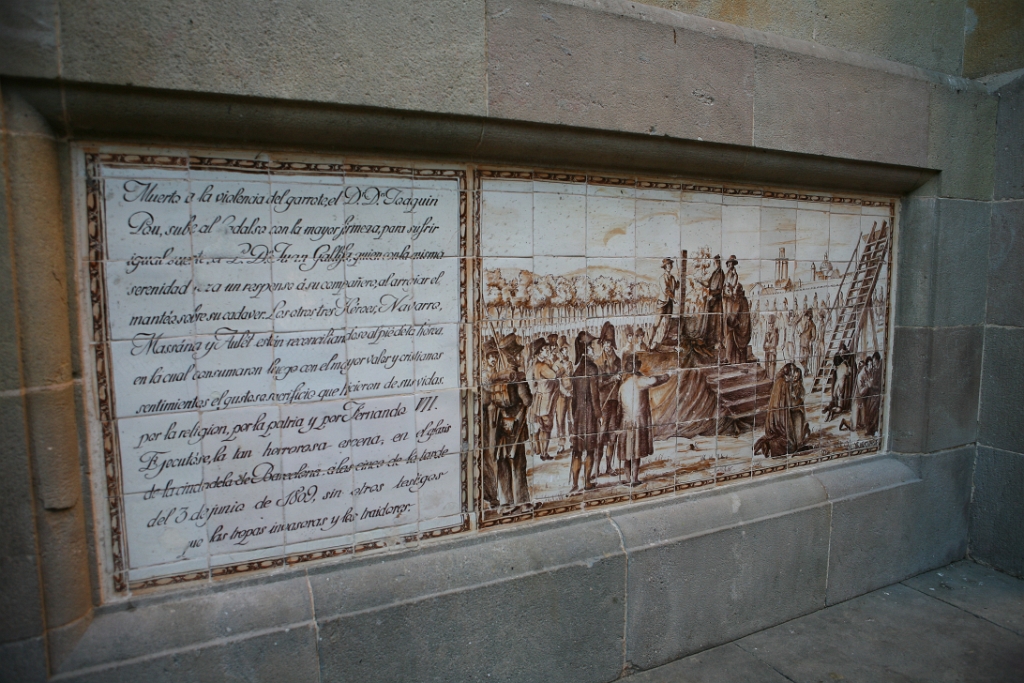 Muerto a la violencia del garrote, el D.Dn. Joaquin
Pou, sube al cadalso con la mayor firmeza, para sufrir
igual suerte, a Pe. Dn. Juan Gallifa, quien con la misma
serenidad reza un responso á su compañero, al arrojar el
mantéo, sobre su cadaver. Los otros tres Héroes, Navarro,
Massána y Aulet están reconciliandose al pié de la hórca
en la cual consumaron luego con el mayor valor y cristianos
sentimientos el gustoso sacrificio que hicieron de sus vidas.
por la religion, por la patria y por Fernando VII.
Ejecutóse, la tan horrorosa escena, en el glasis
de la ciudadela de Barcelona, á las cinco de la tarde
del 3 de junio de 1809, sin otros testigos
que las tropas invasoras y los traidores.